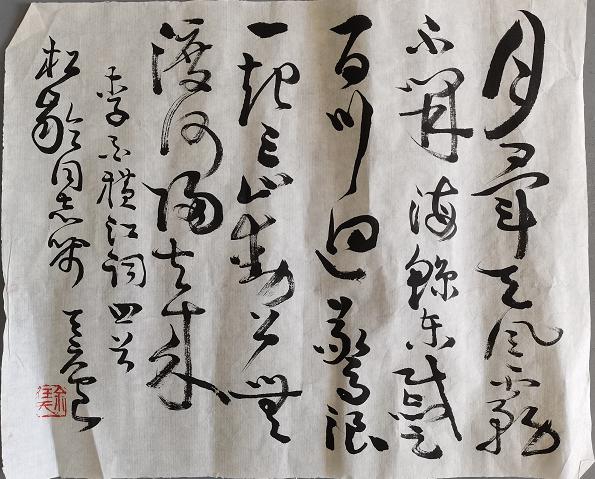 月暈天風霧
不開海鯨東蹙
百川迴驚浪
一起三山動公無
渡河歸去來
李白横江詞四首
松齡同志嘱